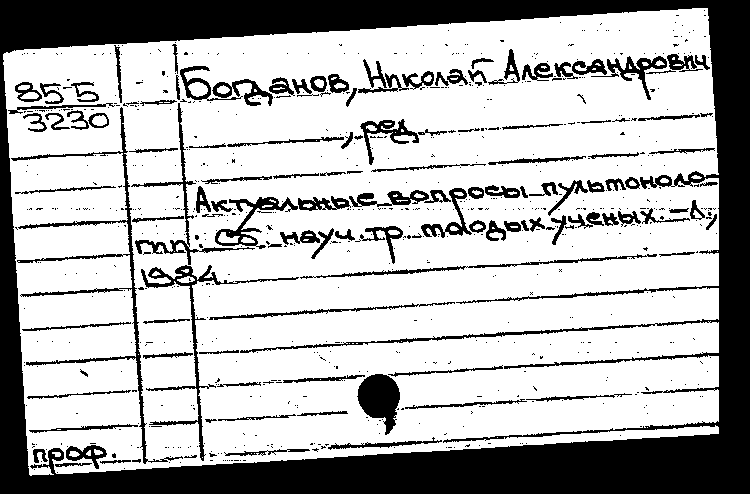 85 5
3230
Богданов, Николай Александрович
, ред.
Актуальные вопросы пульмоноло-
гии: Сб. науч. тр. молодых ученых. - Л.,
1984.
проф.